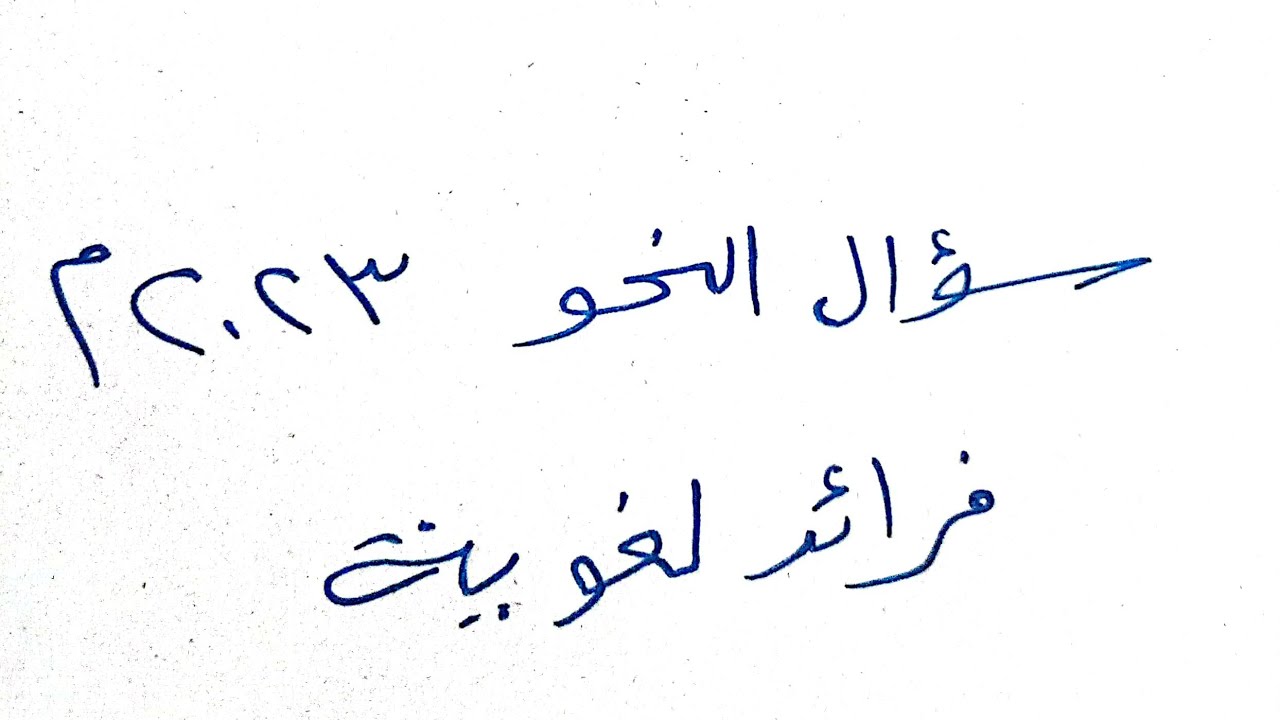 سؤال النحو ٢٠٢٣م
فرائد لغوية